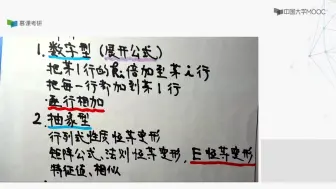 慕课考研
中国大学MOOC
1. 数字型（展开公式）
把第1行的kᵢ倍加到第i行
把每一行都加到第1行
·逐行相加
2. 抽象型
行列式性质恒等变形
矩阵公式、法则恒等变形，E恒等变形
特征值、相似